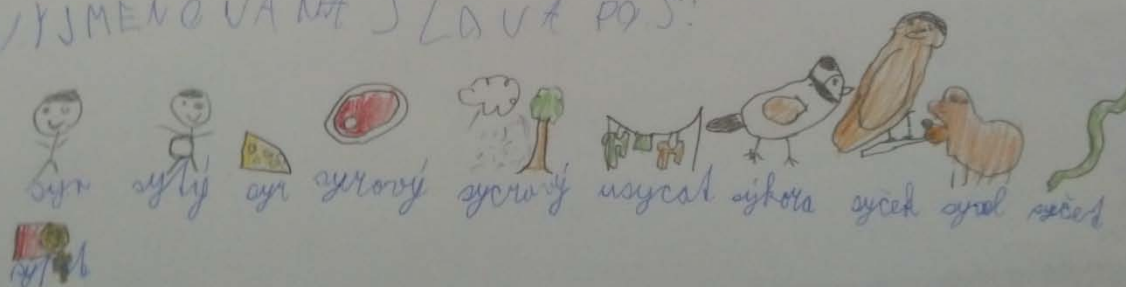 VYJMENOVANÁ SLOVA PO S:
syn sytý syr syrový sycravý usycat sýkora syček sysel syčet
sypat